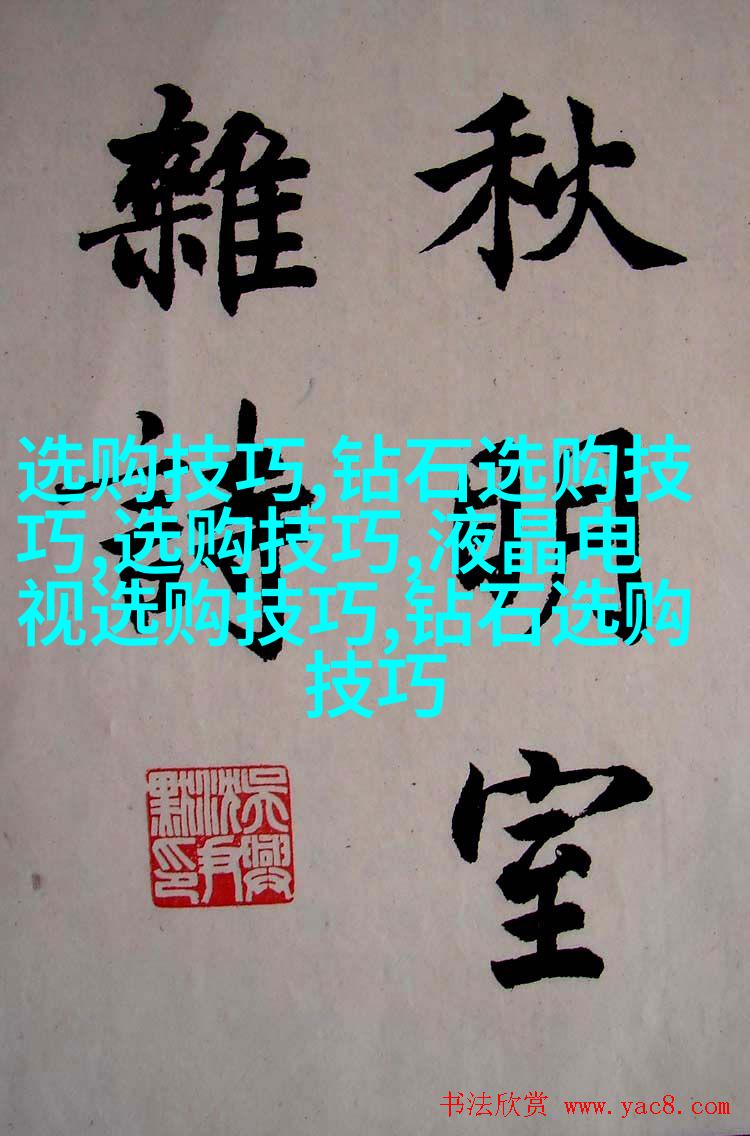 秋明室
雜詩
选购技巧,钻石选购技
巧,选购技巧,液晶电
视选购技巧,钻石选购
技巧
吴興沈尹默印
书法欣赏 www.yac8.com